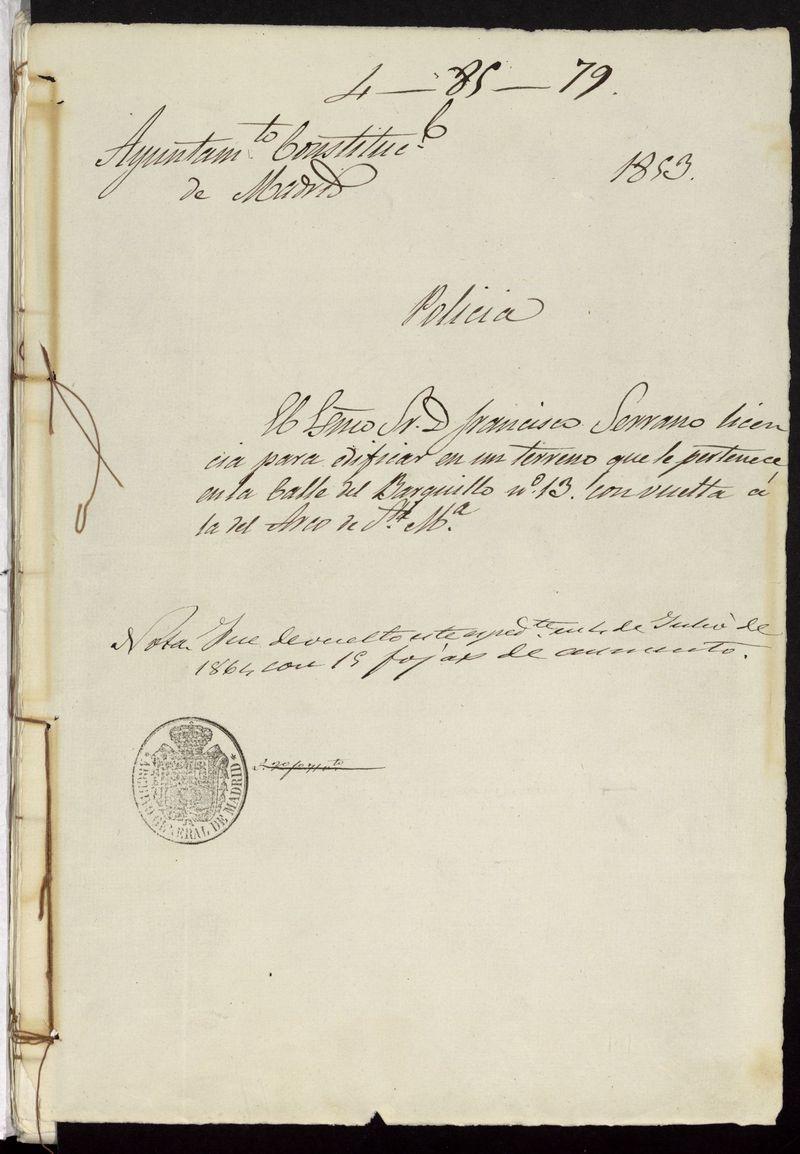 4 — 85 — 79.
Ayuntam.to Constituc.l
de Madrid
1853.
Policia
El Exmo Sr. D Francisco Serrano licen
cia para edificar en un terreno que le pertenece,
en la Calle del Barquillo nº. 13. con vuelta á
la del Arco de Sta. M.a
Nota. Fue devuelto este exped.te en 4 de Julio de
1864 con 15 fojas de aumento.
ARCHIVO GENERAL DE MADRID